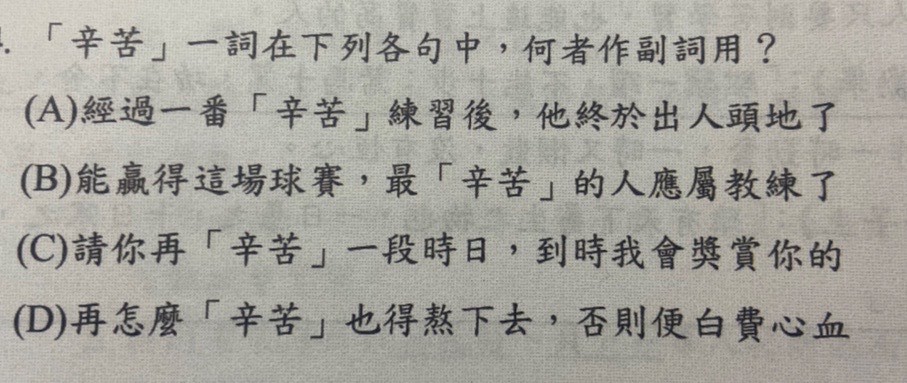 .「辛苦」一詞在下列各句中，何者作副詞用？
(A)經過一番「辛苦」練習後，他終於出人頭地了
(B)能贏得這場球賽，最「辛苦」的人應屬教練了
(C)請你再「辛苦」一段時日，到時我會獎賞你的
(D)再怎麼「辛苦」也得熬下去，否則便白費心血